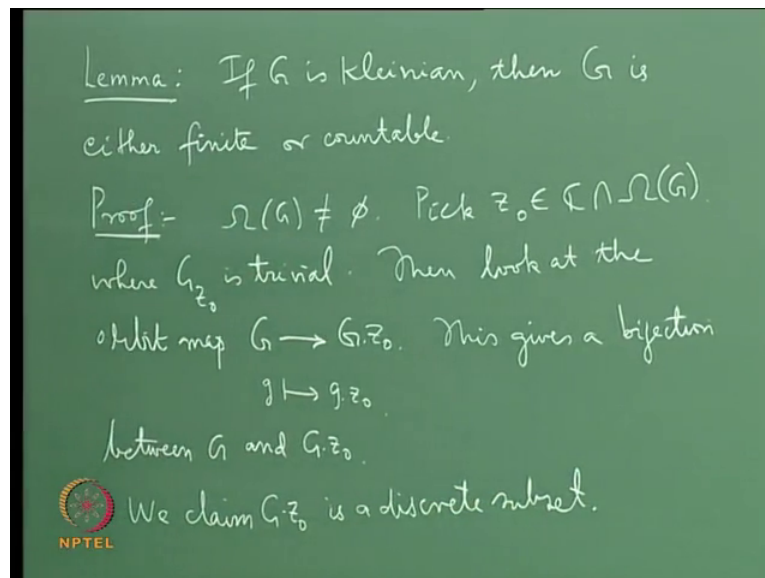 Lemma: If G is Kleinian, then G is
either finite or countable.
Proof:- Ω(G) ≠ ϕ. Pick z₀ ∈ ℂ ∩ Ω(G).
where G_z₀ is trivial. Then look at the
orbit map G ⟶ G.z₀. This gives a bijection
g ⟼ g.z₀.
between G and G.z₀.
We claim G.z₀ is a discrete subset.
NPTEL